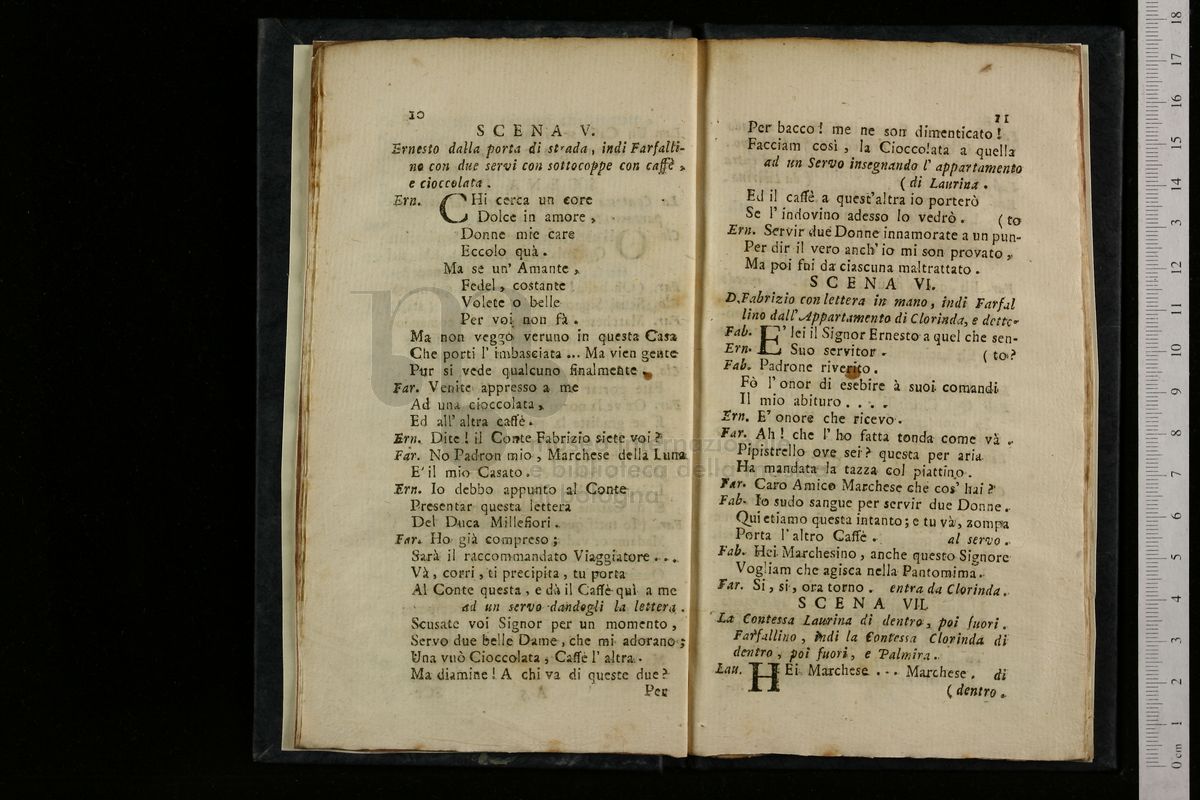 10
SCENA V.
Ernesto dalla porta di strada, indi Farfalli-
no con due servi con sottocoppe con caffè,
e cioccolata.
Ern. CHi cerca un core
Dolce in amore,
Donne mie care
Eccolo quà.
Ma se un' Amante,
Fedel, costante
Volete o belle
Per voi non fà.
Ma non veggo veruno in questa Casa
Che porti l' imbasciata ... Ma vien gente
Pur si vede qualcuno finalmente.
Far. Venite appresso a me
Ad una cioccolata,
Ed all' altra caffè.
Ern. Dite! il Conte Fabrizio siete voi?
Far. No Padron mio, Marchese della Luna
E' il mio Casato.
Ern. Io debbo appunto al Conte
Presentar questa lettera
Del Duca Millefiori.
Far. Ho già compreso;
Sarà il raccommandato Viaggiatore ...
Và, corri, ti precipita, tu porta
Al Conte questa, e dà il Caffè quì a me
ad un servo dandogli la lettera.
Scusate voi Signor per un momento,
Servo due belle Dame, che mi adorano;
Una vuò Cioccolata, Caffè l' altra.
Ma diamine! A chi va di queste due?
Per
11
Per bacco! me ne son dimenticato!
Facciam così, la Cioccolata a quella
ad un Servo insegnando l' appartamento
(di Laurina.
Ed il caffè a quest' altra io porterò
Se l' indovino adesso lo vedrò. (to
Ern. Servir due Donne innamorate a un pun-
Per dir il vero anch' io mi son provato,
Ma poi fui da ciascuna maltrattato.
SCENA VI.
D. Fabrizio con lettera in mano, indi Farfal
lino dall' Appartamento di Clorinda, e dette.
Fab. E' lei il Signor Ernesto a quel che sen-
Ern. Suo servitor. (to?
Fab. Padrone riverito.
Fò l' onor di esebire à suoi comandi
Il mio abituro ....
Ern. E' onore che ricevo.
Far. Ah! che l' ho fatta tonda come và.
Pipistrello ove sei? questa per aria
Ha mandata la tazza col piattino.
Far. Caro Amico Marchese che cos' hai?
Fab. Io sudo sangue per servir due Donne.
Quietiamo questa intanto; e tu và, zompa
Porta l' altro Caffè. al servo.
Fab. Hei Marchesino, anche questo Signore
Vogliam che agisca nella Pantomima.
Far. Si, si, ora torno. entra da Clorinda.
SCENA VII.
La Contessa Laurina di dentro, poi fuori.
Farfallino, indi la Contessa Clorinda di
dentro, poi fuori, e Palmira.
Lau. HEi Marchese ... Marchese. di
(dentro.
museo internazionale
e biblioteca della musica
di bologna